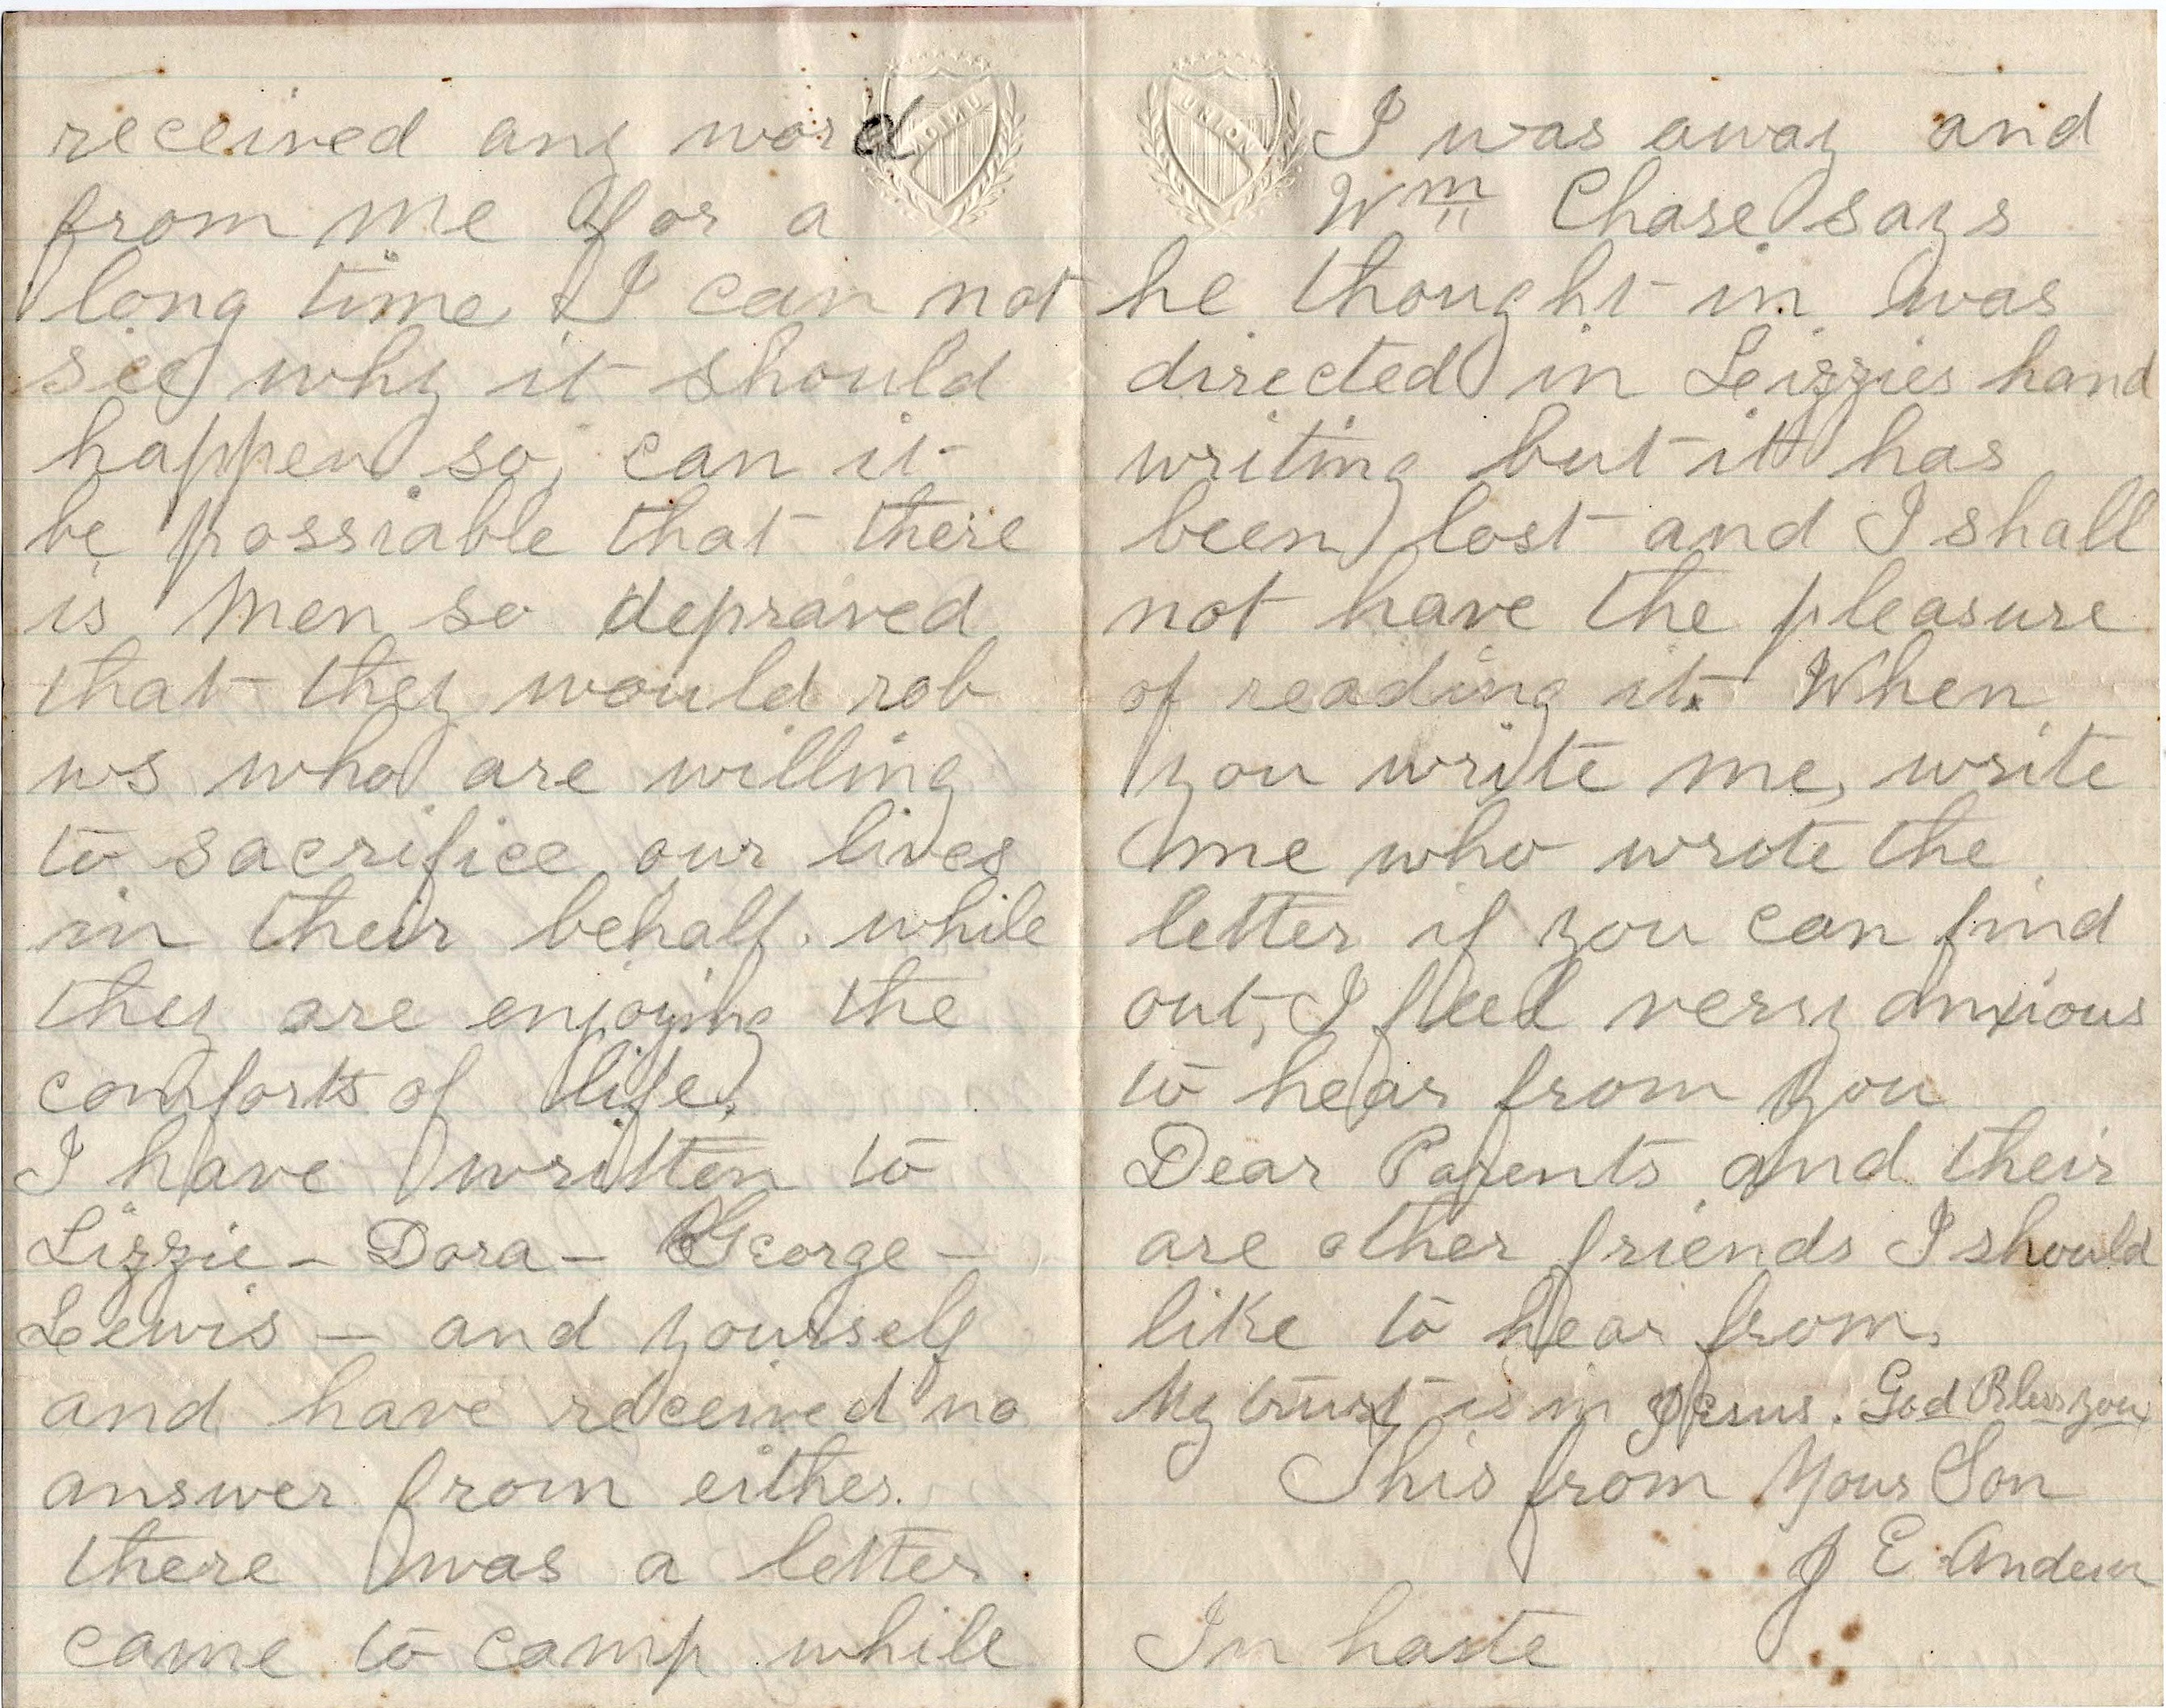 received any word
from me for a
long time, I can not
see why it should
happen so, can it
be possiable that there
is men so depraved
that they would rob
us who are willing
to sacrifice our lives
in their behalf. while
they are enjoying the
comforts of life.
I have written to
Lizzie - Dora - George -
Lewis - and yourself
and have received no
answer from either.
there was a letter
came to camp while
UNION
I was away and
Wm Chase says
he thought in was
directed in Leizzies hand
writing but it has
been lost and I shall
not have the pleasure
of reading it. When
you write me, write
me who wrote the
letter if you can find
out, I feel very anxious
to hear from you
Dear Parents and their
are other friends I should
like to hear from.
My trust is in Jesus. God Bless you
This from Your Son
J E
In haste